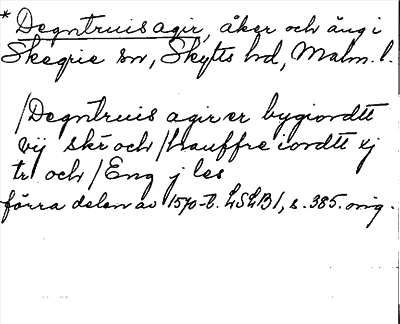 * Degntruis agir, åker och äng i
Skegrie sn, Skytts hd, Malm. l.
/Degntruis agir er bygiordtt
vij skr och /hauffre iordtt xj
tr och /Eng j les
förra delen av 1570-t. LSLB1, s. 385. orig.